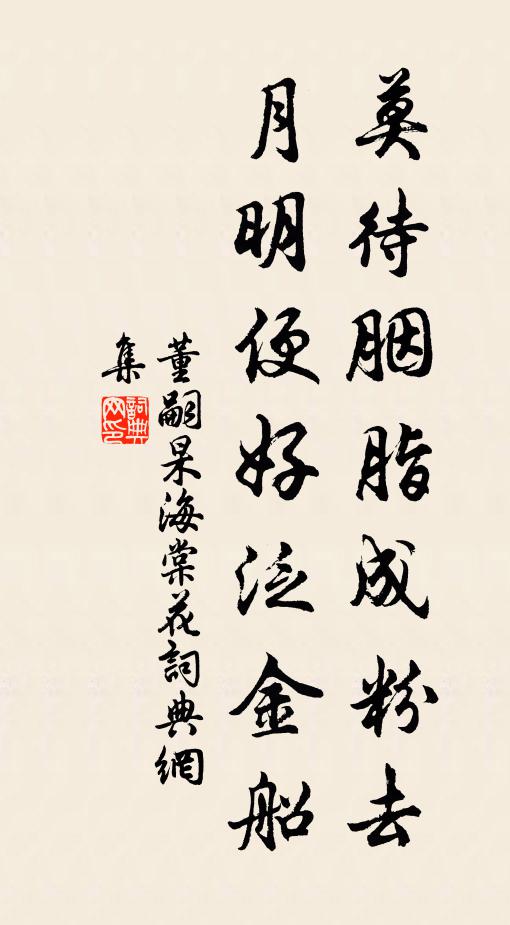 莫待胭脂成粉去
月明便好泛金船
董嗣杲海棠花詞典網
集
詞典
网印